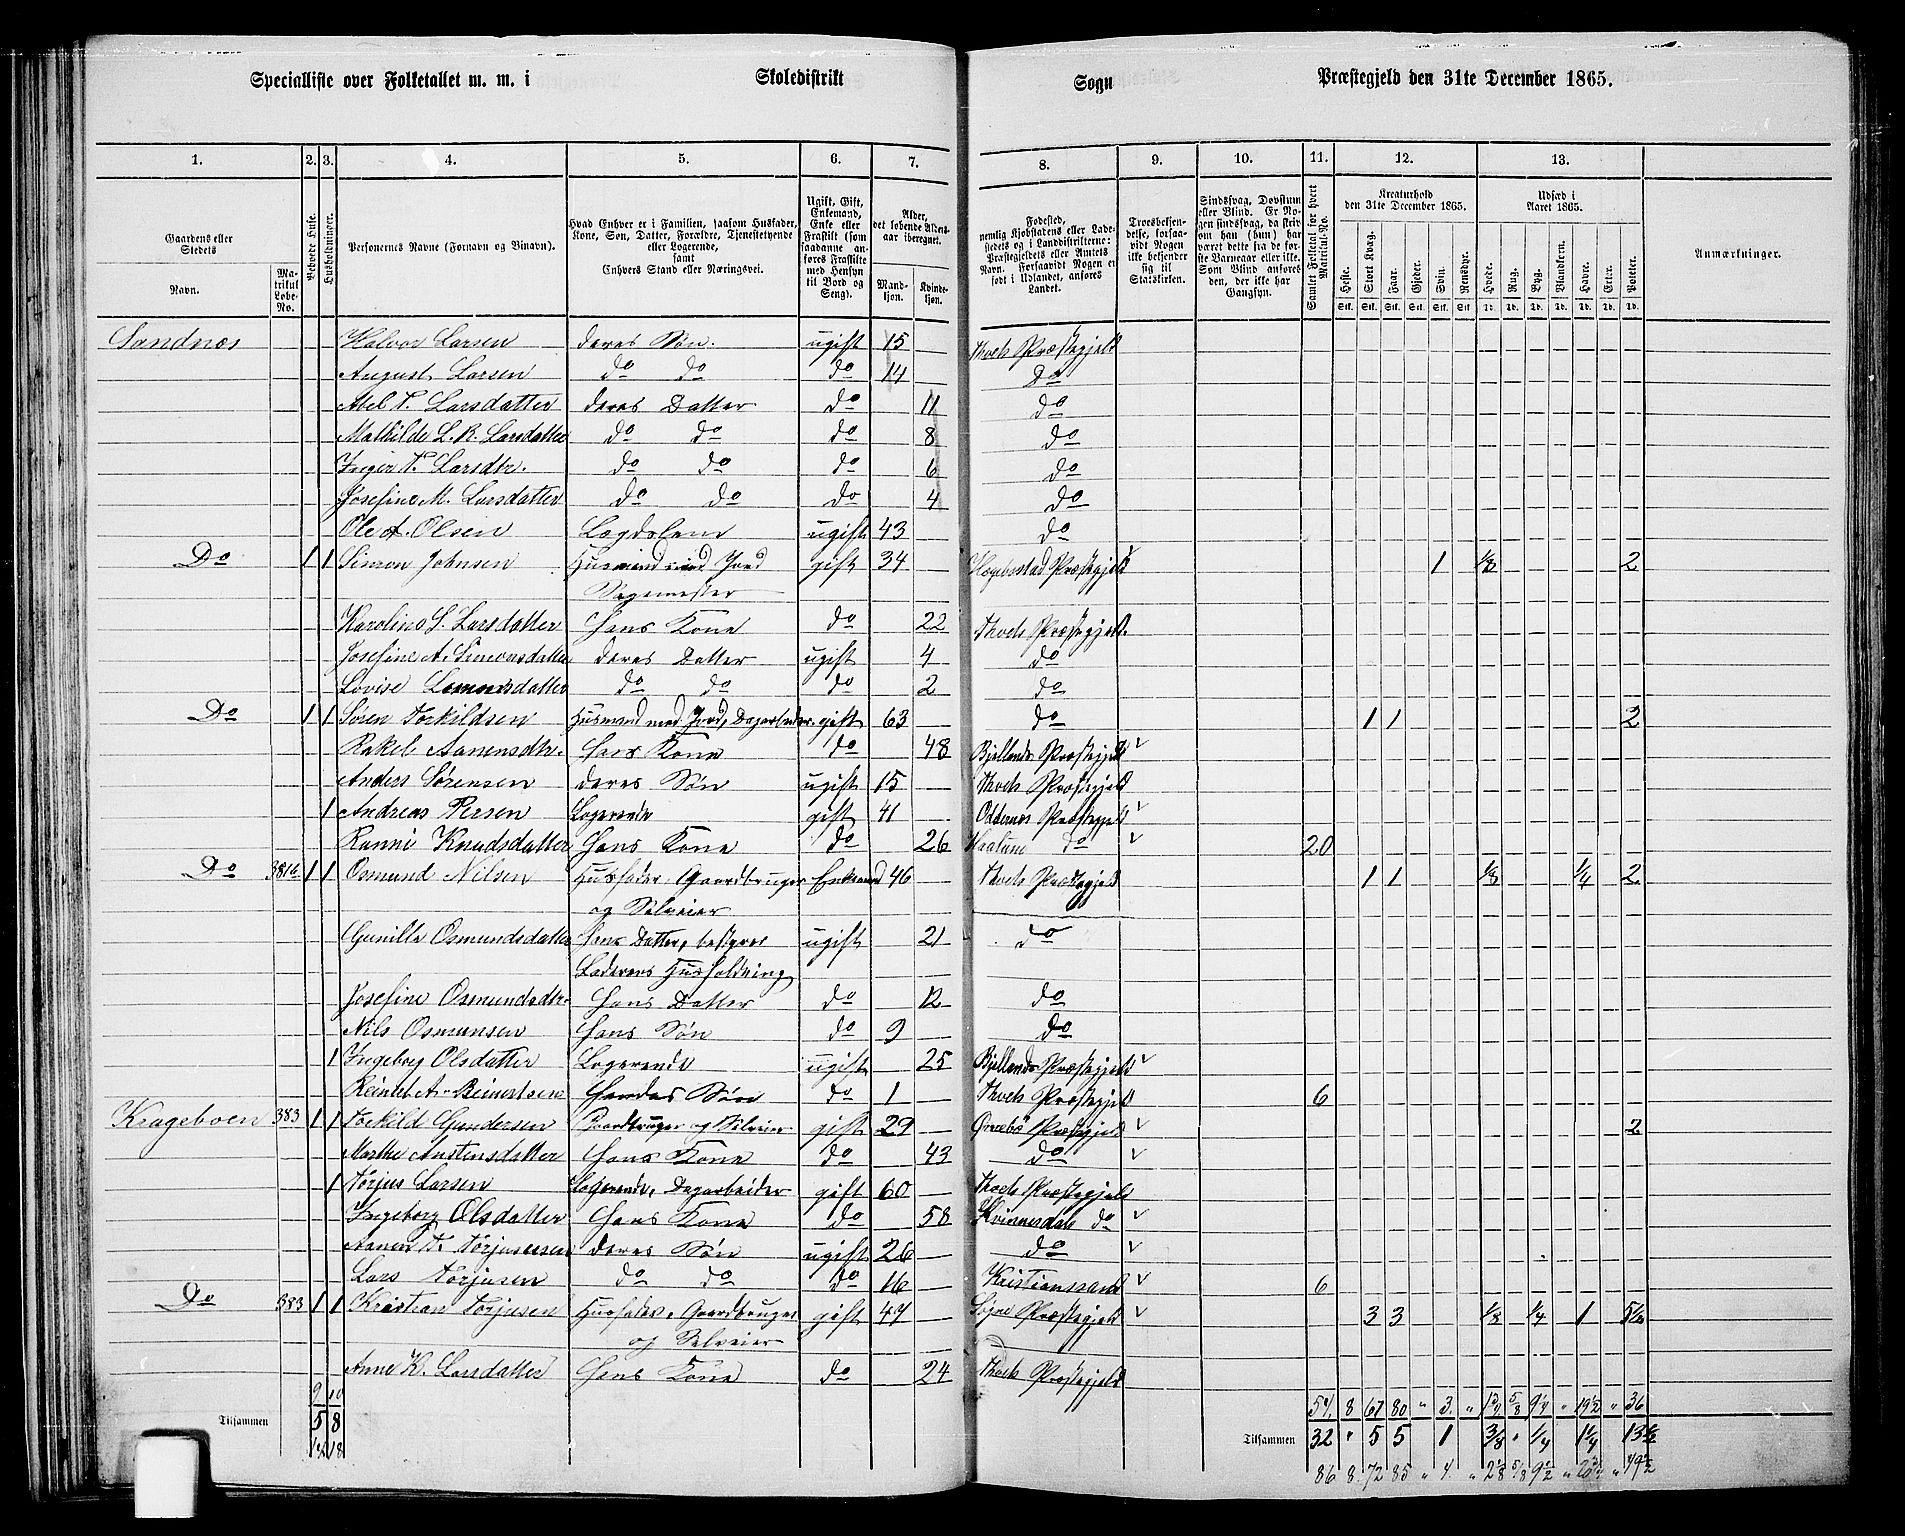 Specialliste over Folketallet m. m. i Skoledistrikt Sogn Præstegjeld den 31te December 1865.
1. 2. 3. 4. 5. 6. 7. 8. 9. 10. 11. 12. 13.
Gaardens eller Stedets Navn. Matrikul Løbe-No. Beboede Huse. Husholdninger. Personernes Navne (Fornavn og Binavn). Hvad Enhver er i Familien, saasom Husfader, Kone, Søn, Datter, Forældre, Tjenestetyende eller Logerende, samt Enhvers Stand eller Næringsvei. Ugift, Gift, Enkemand, Enke eller Fraskilt (som saadanne anføres Fraskilte med Hensyn til Bord og Seng). Alder, det løbende Aldersaar iberegnet. Mandkjøn. Kvindekjøn.
Fødested, nemlig Kjøbstadens eller Ladestedets og i Landdistrikterne: Præstegjeldets eller Amtets Navn. Forsaavidt Nogen er født i Udlandet, anføres Landet. Troesbekjendelse, forsaavidt Nogen ikke bekjender sig til Statskirken. Sindssvag, Døvstum eller Blind. Er Nogen sindssvag, da skrives om han (hun) har været dette fra de første Barneaar eller ikke. Som Blind anføres den, der ikke har Gangsyn. Samlet Folketal for hvert Matrikul-No. Kreaturhold den 31te December 1865. Heste. Stort Kvæg. Faar. Gjeder. Svin. Rensdyr. Udsæd i Aaret 1865. Hvede. Rug. Byg. Blandkorn. Havre. Erter. Poteter. Anmærkninger.
Stk. Stk. Stk. Stk. Stk. Stk. Td. Td. Td. Td. Td. Td. Td.
Sandnæs Halvor Larsen deres Søn. ugift 15 Præstegjeld
August Larsen do do do 14 Do
Abel T. Larsdatter deres Datter do 11 do
Mathilde L. R. Larsdatter do do do 8 do
Inger T. Larsdtr. do do do 6 do
Josefine M. Larsdatter do do do 4 do
Ole A. Olsen Lægdslem ugift 43 do
Do 1 1 Simon Johnsen Husmand med Jord gift 34 Hægebostad Præstegjeld 1 1/8 2
Sagmester
Karoline S. Larsdatter Hans Kone do 22 Præstegjeld.
Josefine A. Simonsdatter deres Datter ugift 4 do
Lovise Simonsdatter do do do 2 do
Do 1 1 Søren Torkildsen Husmand med Jord, Dagarbeider gift 63 do 1 1 2
Rakel Aanensdtr. Hans Kone do 48 Bjellands Præstegjeld
Anders Sørensen deres Søn ugift 15 Præstegjeld
1 Andreas Persen Logerende gift 41 Oddernes Præstegjeld
Ranni Knudsdatter Hans Kone do 26 do 20
Do 381b 1 1 Osmund Nilsen Husfader, Gaardbruger Enkemand 46 Præstegjeld 1 1 1/8 1/4 2
og Selveier
Gunille Osmundsdatter Hans Datter, bestyrer ugift 21 do
Faderens Husholdning
Josefine Osmundsdtr. Hans Datter do 12 do
Nils Osmunsen Hans Søn do 9 do
1 Ingeborg Olsdatter Logerende ugift 25 Bjellands Præstegjeld
Søn do 1 Præstegjeld 6
Krageboen 383 1 1 Torkild Gundersen Gaardbruger og Selveier gift 29 Øvrebø Præstegjeld 2
Marthe Austensdatter Hans Kone do 43 do
1 Tørjus Larsen Logerende, Dagarbeider gift 60 Præstegjeld
Ingeborg Olsdatter Hans Kone do 58 Kvinnesdal do
Aanen T. Tørjussen deres Søn ugift 26 do
Lars Tørjusen do do do 16 Kristianssand 6
Do 383 1 1 Kristian Tørjusen Husfader, Gaardbruger gift 47 Søgne Præstegjeld 3 3 1/8 1/4 1
og Selveier
Anne K. Larsdatter Hans Kone do 24 Præstegjeld
9 10 54 8 67 80 " 3. " 5/8 9 1/4 " 19 1/2 " 36
Tilsammen 5 8 Tilsammen 32 " 5 5 1 3/8 " 1/4 1 1/4
86 8 72 85 " 4. " 2 1/8 5/8 9 1/2 "